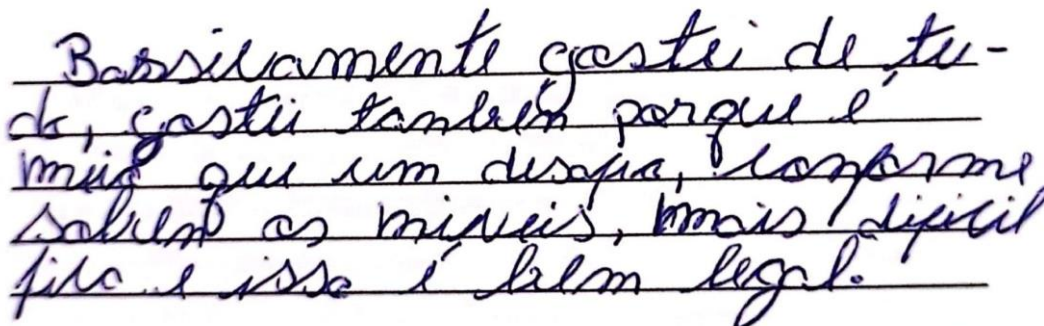 Bassicamente gostei de tu-
do, gostei também porque é
meio que um desafio, conforme
sobem os niveis, mais dificil
fica e isso é bem legal.